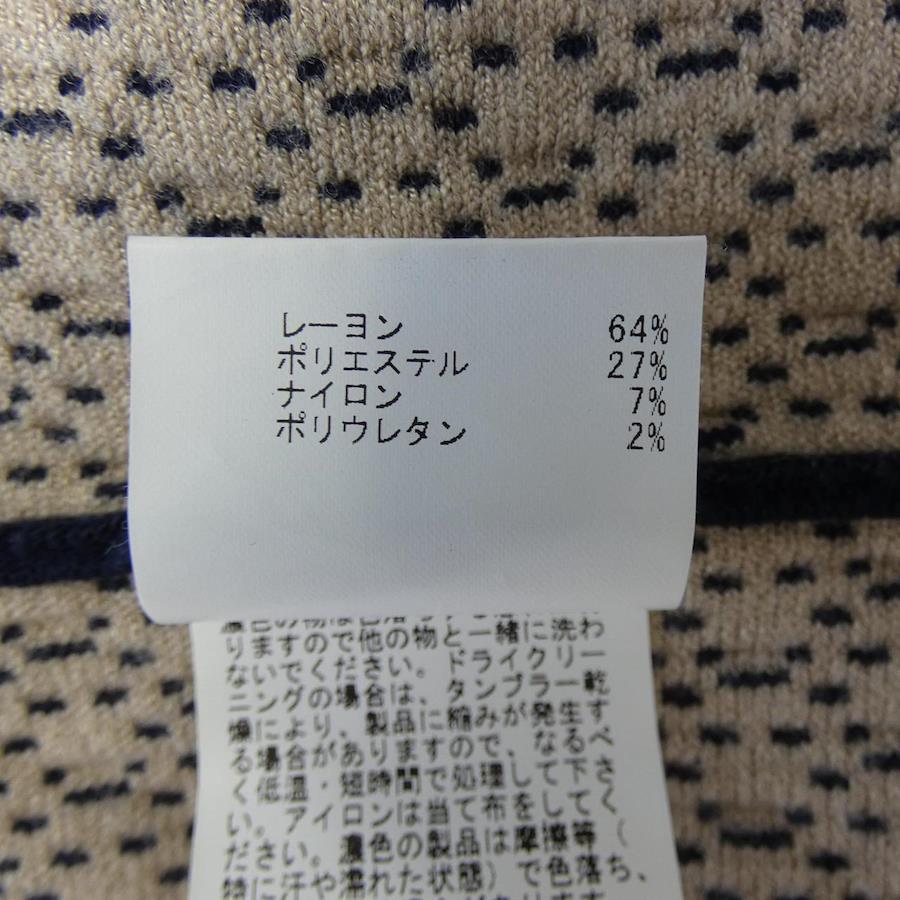 レーヨン 64%
ポリエステル 27%
ナイロン 7%
ポリウレタン 2%
りますので他の物と一緒に洗わ
ないでください。ドライクリー
ニングの場合は、タンブラー乾
燥により、製品に縮みが発生す
る場合がありますので、なるべ
く低温・短時間で処理して下さ
い。アイロンは当て布をしてく
ださい。濃色の製品は摩擦等（
特に汗や濡れた状態）で色落ち、